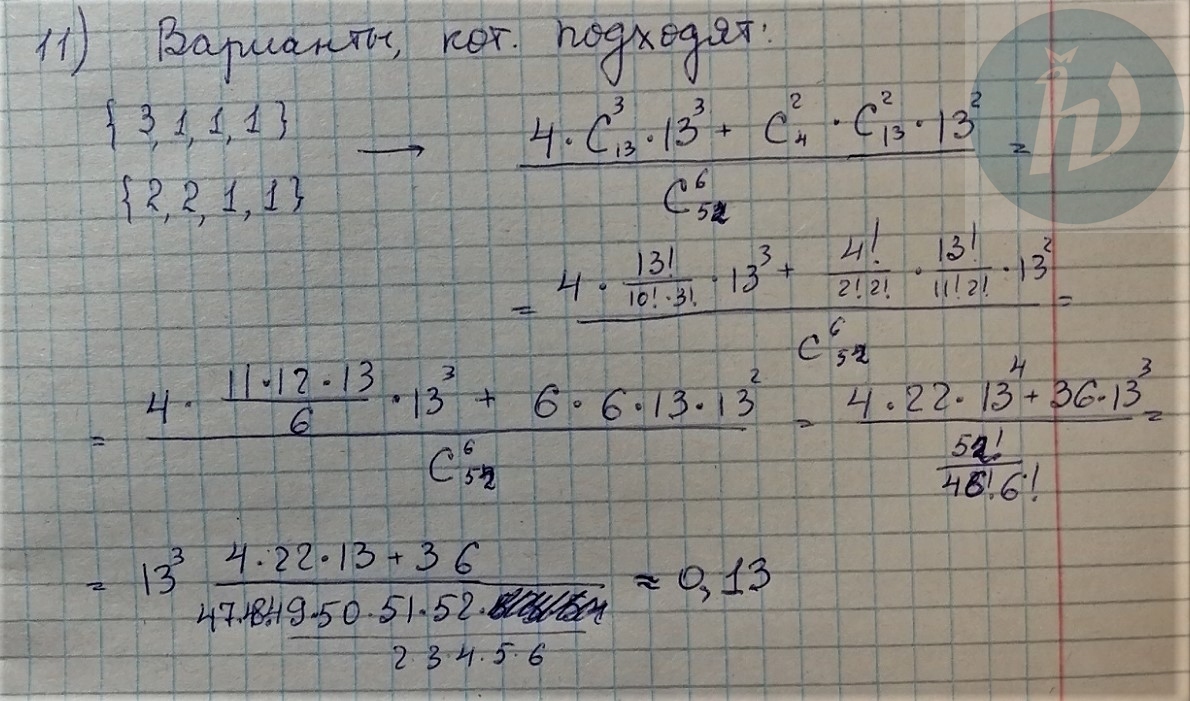 11) Варианты, кот. подходят:
{3,1,1,1}
{2,2,1,1}
→ (4·C₁₃³·13³ + C₄²·C₁₃²·13²) / C₅₂⁶ =
= (4·13!/(10!·3!)·13³ + 4!/(2!2!)·13!/(11!2!)·13²) / C₅₂⁶ =
= (4·(11·12·13)/6·13³ + 6·6·13·13²) / C₅₂⁶ = (4·22·13⁴ + 36·13³) / (52!/(46!6!)) =
= 13³ (4·22·13 + 36) / (47·48·49·50·51·52 / (2·3·4·5·6)) ≈ 0,13